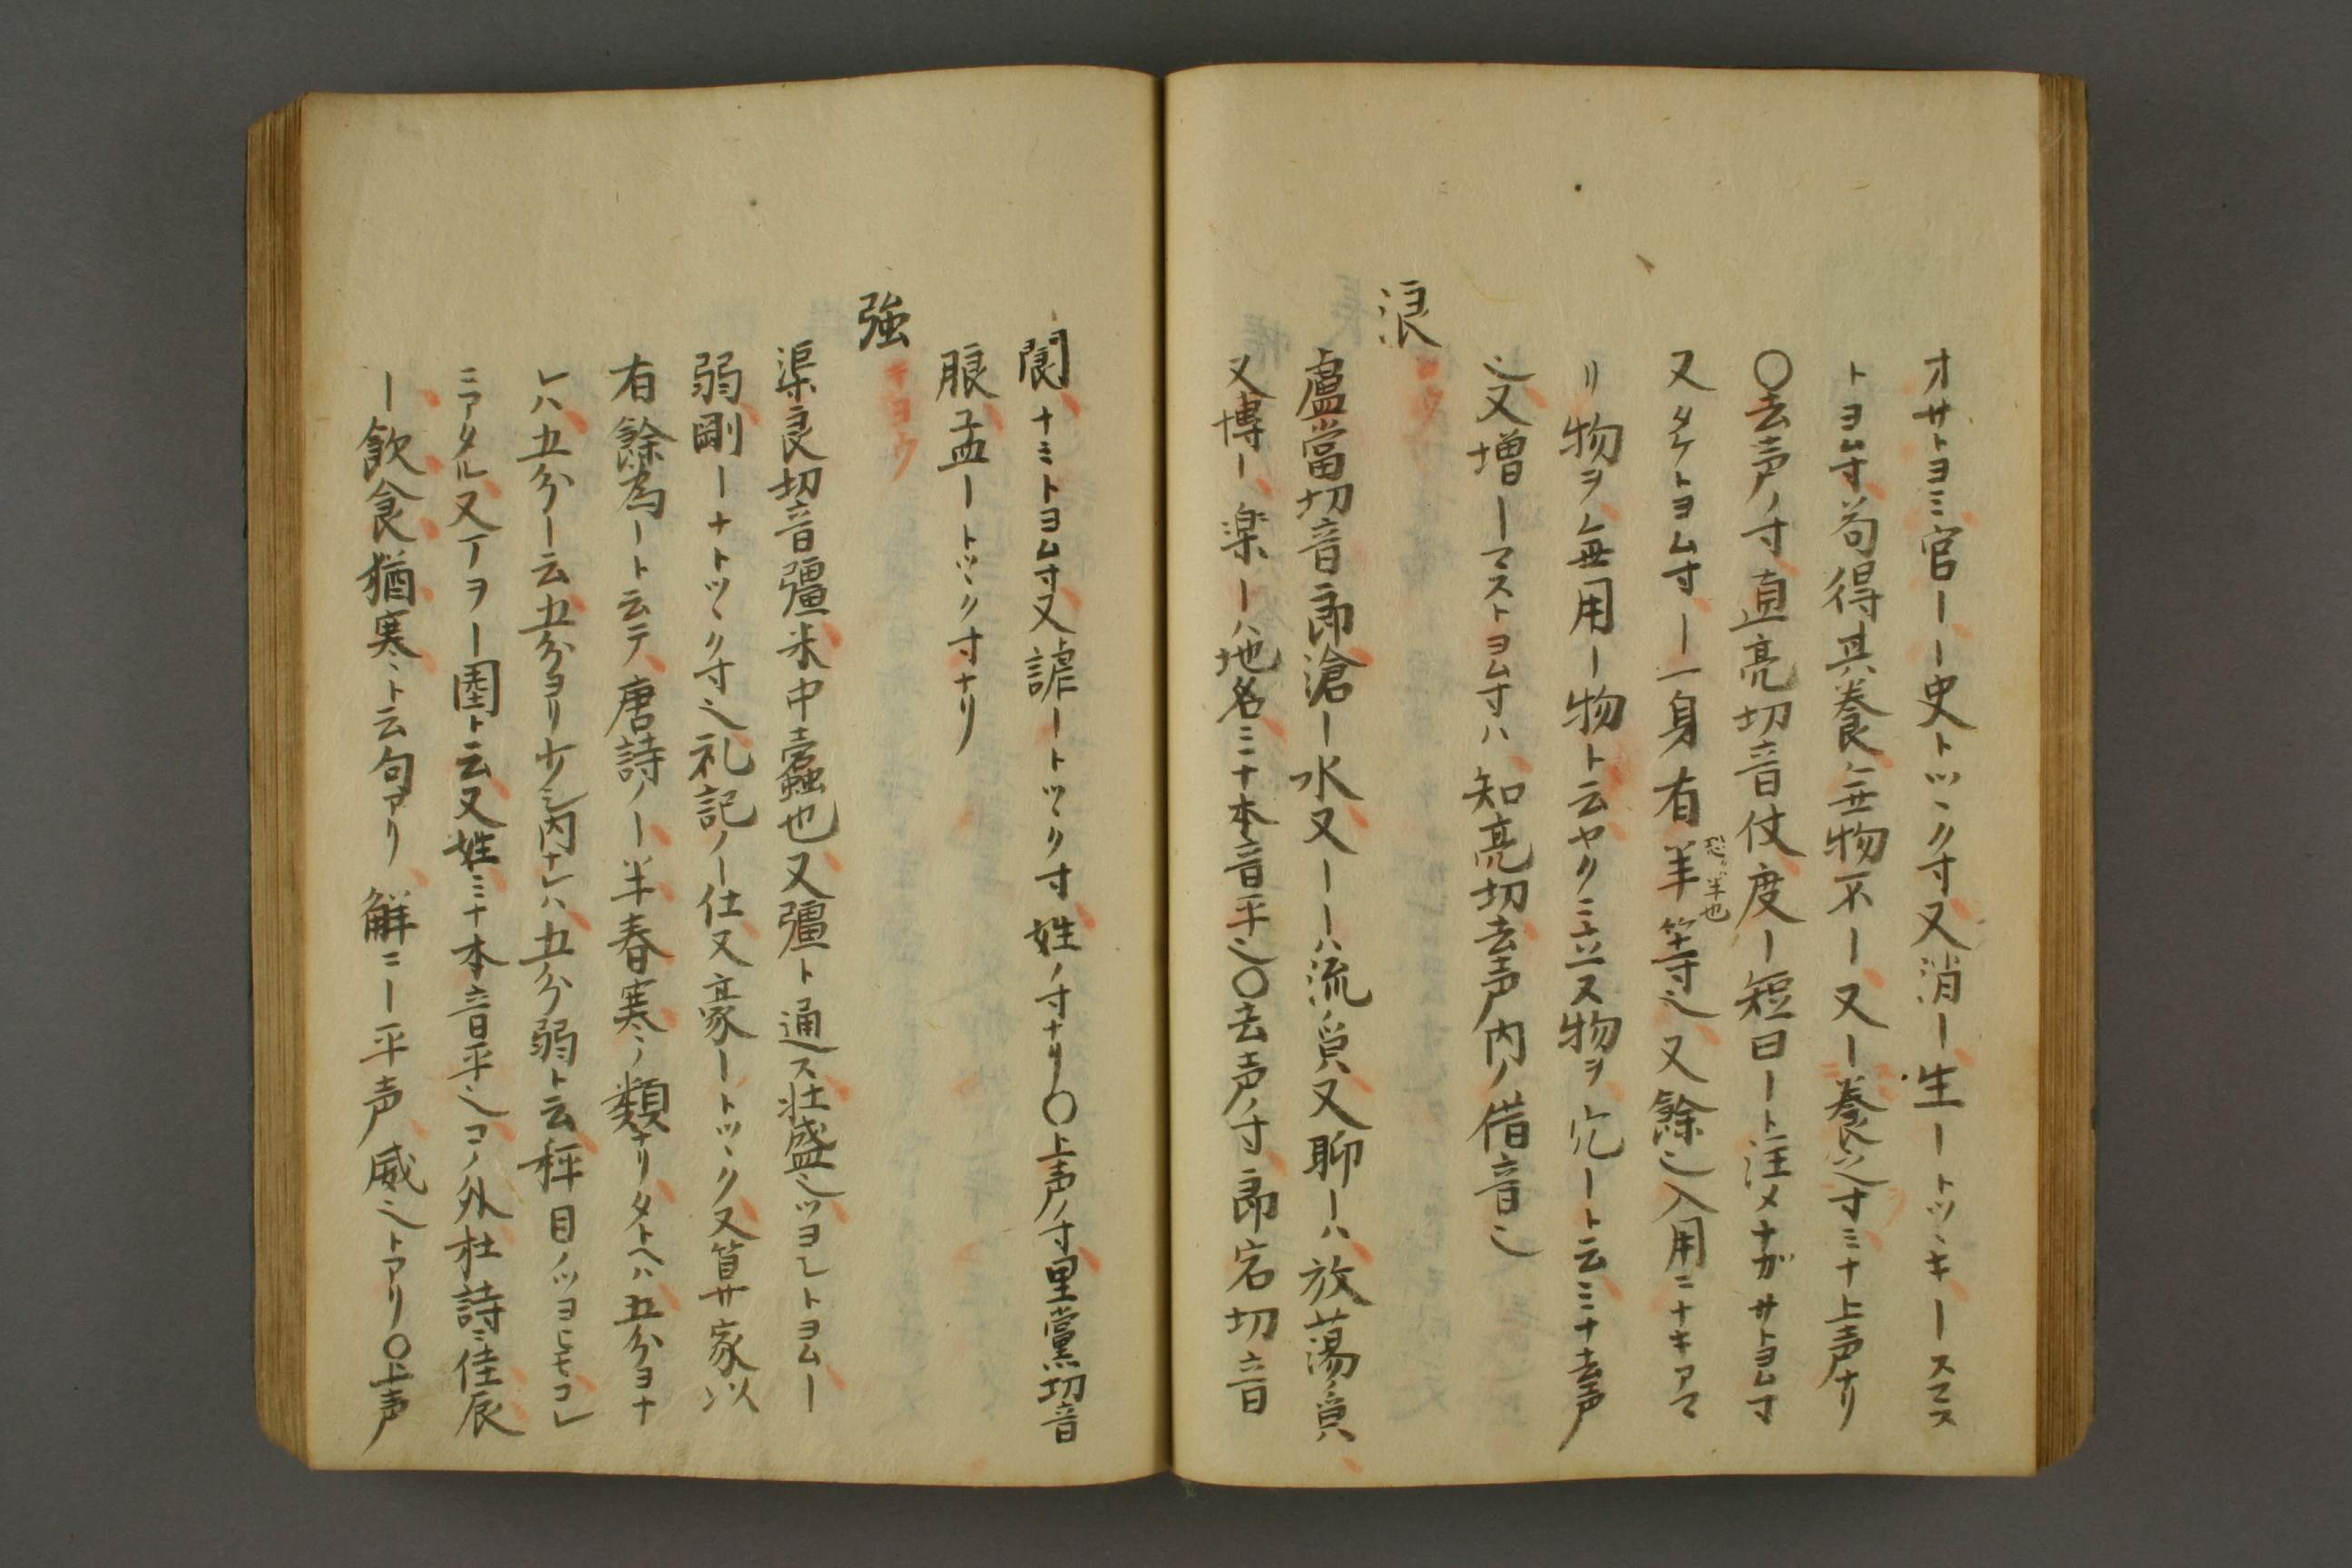 オサトヨミ官ーー史トツヽク寸又消ー生ートツヽキースマス
トヨム寸苟得其養無物不ー又ー養之寸ミナ上声ナリ
〇去声ノ寸直亮切音仗度ー短曰ート注メナガサトヨム寸
又タケトヨム寸ー一身有半等也又餘也入用ニナキアマ
恐ク半也
リ物ヲ無用ー物ト云ヤクニ立ヌ物ヲ冗ート云ミナ去声
也又増ーマストヨム寸ハ知亮切去声内ノ借音也
浪
ラウ
盧當切音郎滄ー水又ーーハ流皃又聊ーハ放蕩皃
又博ー楽ーハ地名ミナ本音平也〇去声ノ寸郎宕切音
閬ナミトヨム寸又謔ートツヽク寸姓ノ寸ナリ〇上声ノ寸里黨切音
朖孟ートツヽク寸ナリ
強
キヨウ
渠良切音彊米中蠹也又彊ト通ス壮盛也ツヨシトヨムー
弱剛ーナトツヽク寸也礼記ノー仕又豪ートツヽク又算サ家以
有餘為ート云テ唐詩ノー半春寒ノ類ナリタトヘハ五分ヨナ
レハ五分ー云五分ヨリ少シ内ナレハ五分弱ト云秤目ノツヨヒモコレ
ニアタル又丁ヲー圉ト云又姓ミナ本音平也コノ外杜詩ニ佳辰
ー飲食猶寒ヽト云句アリ解ニー平声威也トアリ〇上声